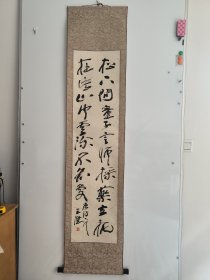 松下問童子言師採藥去祇
在此山中雲深不知處
唐詩